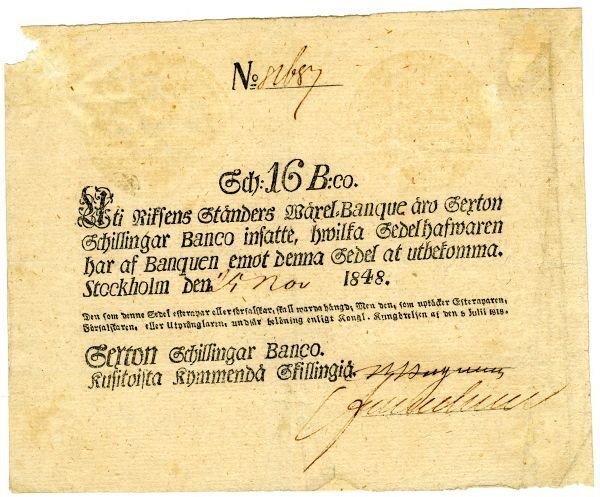 No 81687
Sch: 16 B:co.
Uti Riksens Ständers Wäxel-Banque äro Sexton
Schillingar Banco insatte, hwilka Sedelhafwaren
har af Banquen emot denna Sedel at utbekomma.
Stockholm den Nov 1848.
Den som denne Sedel efterapar eller förfalskar, skall warda hängd; Men den, som uptäcker Efteraparen,
Förfalskaren, eller Utprånglaren, undfår belöning enligt Kongl. Kungörelsen af den 8 Julii 1818.
Sexton Schillingar Banco.
Kusitoista Kymmendä Skillingiä.